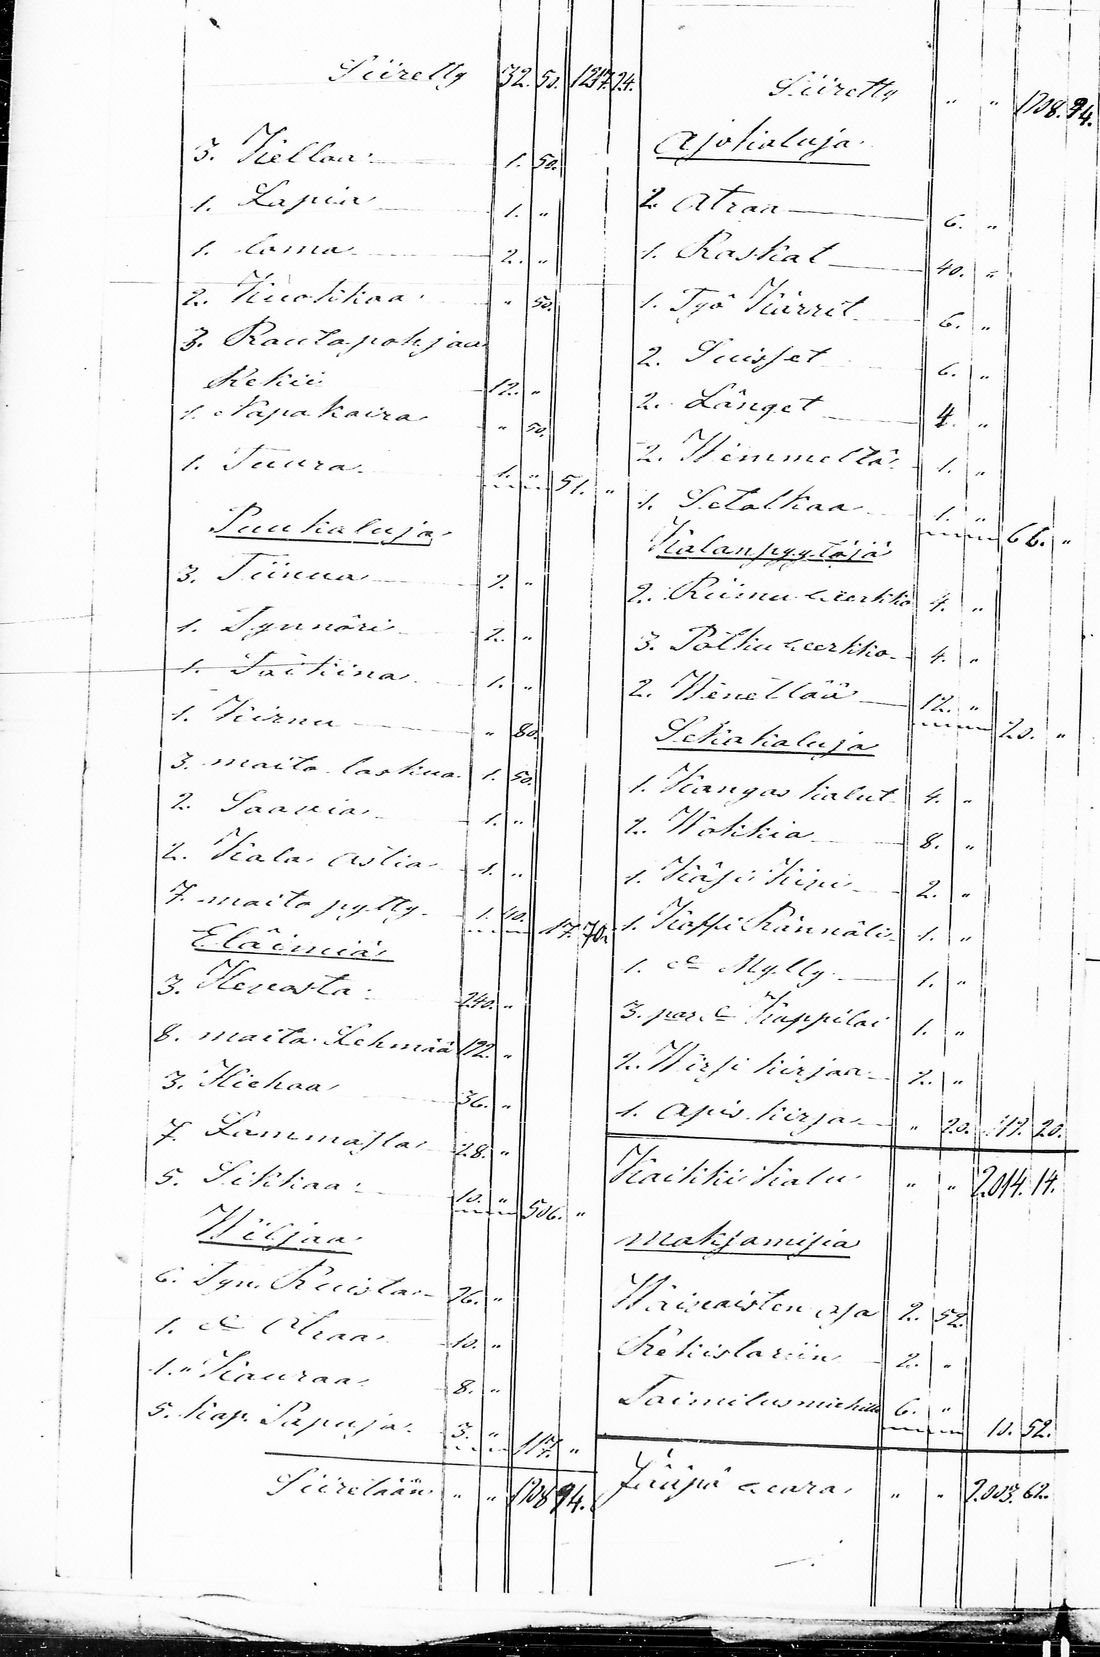 Siiretty 32. 50. 1217. 24.
3. Kelloa 1. 50.
1. Lapia 1. "
1. loma 2. "
2. Kuokkaa " 50.
3. Rautapohjaa
Rekii 12. "
1. Napakaira " 50.
1. Tuura 1. " 51. "
Puukaluja
3. Tiinua 2. "
1. Tynnöri 2. "
1. Taikina 1. "
1. Kirnu " 80.
3. maito laskua 1. 50.
2. Saavia 1. "
2. Kala astia 1. "
7. maito pytty 1. 40. 17. 70.
Eläimiä
3. Hevosta 240. "
8. maito Lehmää 192. "
3. Hiehoa 36. "
7. Lammasta 28. "
5. Sikkaa 10. " 506. "
Wiljaa
6. Tyn. Ruista 96. "
1. d:o Ohraa 10. "
1. " Kauraa 8. "
5. kap. Papuja 3. " 117. "
Siiretään " " 1708 94.
Siiretty " " 1708. 94.
Ajokaluja
2. Atraa 6. "
1. Raskat 40. "
1. Työ Kärrit 6. "
2. Suisset 6. "
2. Länget 4. "
2. Wemmeltä 1. "
1. Setolkaa 1. " 66. "
Kalanpyytöjä
2. Riimu verkko 4. "
3. Pölku verkko 4. "
2. Wenettää 12. " 20. "
Sekakaluja
1. Kangas kalut 4. "
2. Wokkia 8. "
1. Käsi Kivi 2. "
1. Kaffi Pännäli 1. "
1. d:o Mylly 1. "
3. par. d:o Kappilai 1. "
2. Wirsi kirjaa 2. "
1. Apis. kirja " 20. 119. 20.
Kaikki Kalu " " 2014. 14.
maksamisia
Waivaisten osa 2. 52.
Rekistöriin 2. "
Toimitusmiehille 6. " 10. 52.
Jääpi vara " " 2.003. 62.